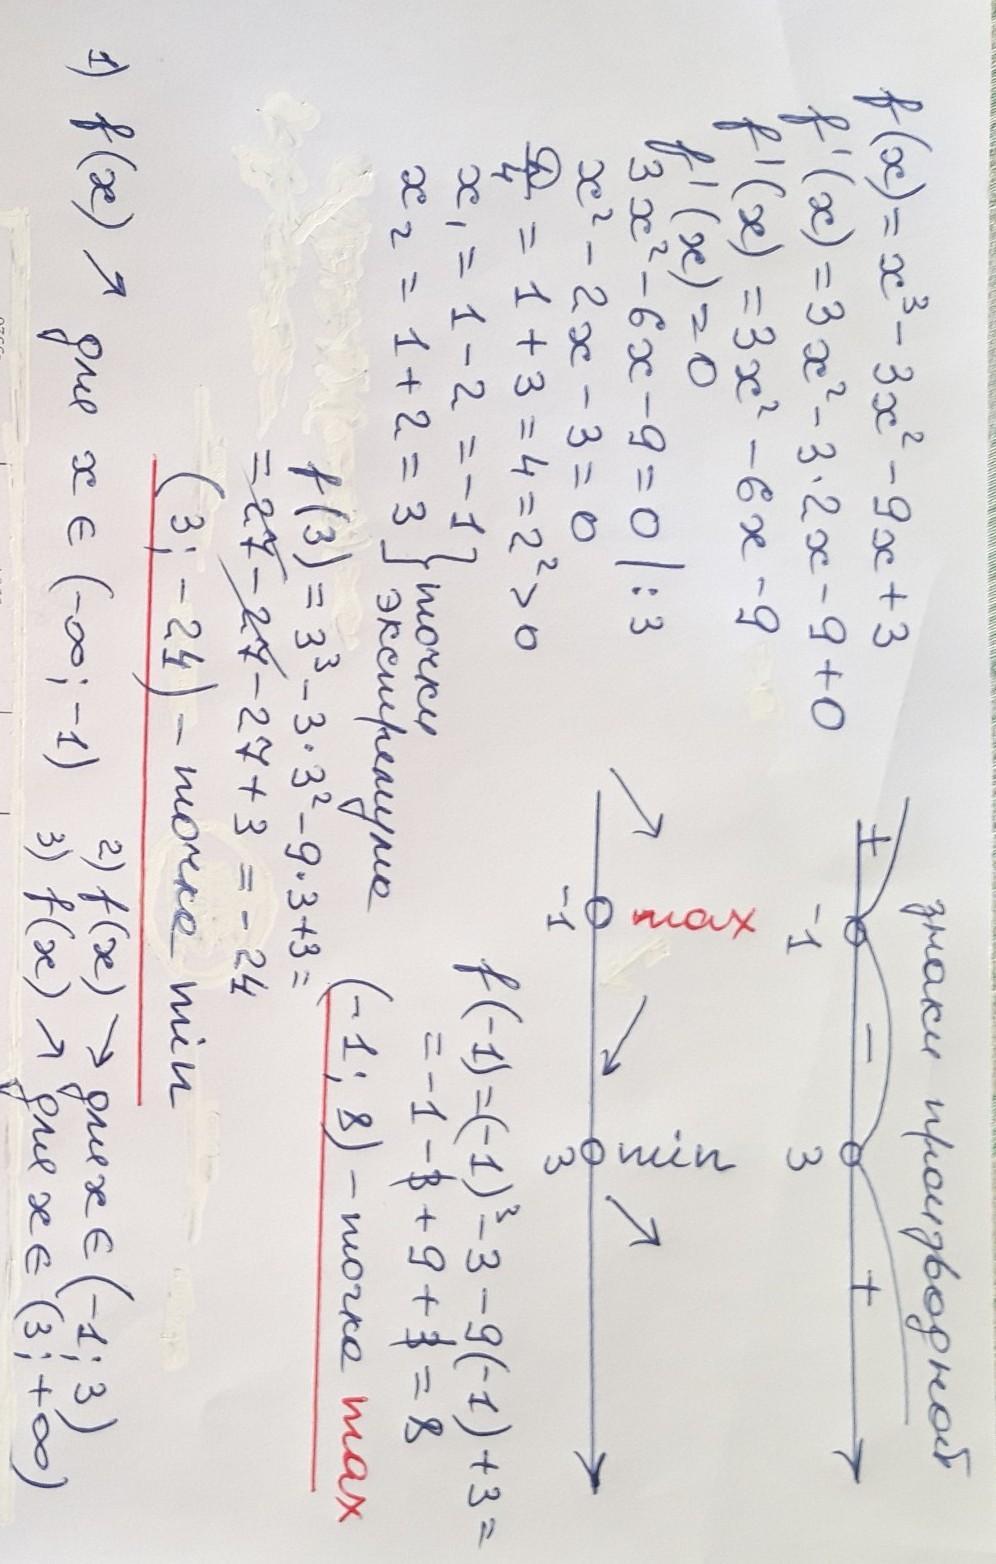 f(x) = x³ - 3x² - 9x + 3
f'(x) = 3x² - 3·2x - 9 + 0
f'(x) = 3x² - 6x - 9
f'(x) = 0
3x² - 6x - 9 = 0 | : 3
x² - 2x - 3 = 0
D/4 = 1 + 3 = 4 = 2² > 0
x₁ = 1 - 2 = -1
x₂ = 1 + 2 = 3
} точки
экстремума
знаки производной
+ - +
-1 3
↗ max ↘ min ↗
-1 3
f(-1) = (-1)³ - 3 - 9(-1) + 3 =
= -1 - 3 + 9 + 3 = 8
(-1; 8) - точка max
f(3) = 3³ - 3·3² - 9·3 + 3 =
= 27 - 27 - 27 + 3 = -24
(3; -24) - точка min
1) f(x) ↗ для x ∈ (-∞; -1)
2) f(x) ↘ для x ∈ (-1; 3)
3) f(x) ↗ для x ∈ (3; +∞)